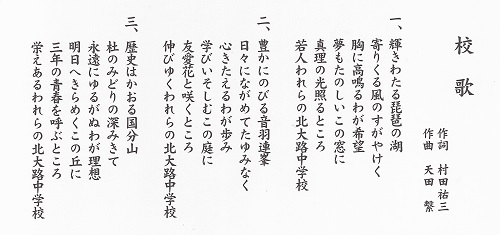 校歌
作詞 村田祐三
作曲 天田繁
一、輝きわたる琵琶の湖
寄りくる風のすがやけく
胸に高鳴るわが希望
夢もたのしいこの窓に
真理の光照るところ
若人われらの北大路中学校
二、豊かにのびる音羽連峯
日々にながめてたゆみなく
心きたえるわが歩み
学びいそしむこの庭に
友愛花と咲くところ
伸びゆくわれらの北大路中学校
三、歴史はかおる国分山
杜のみどりの深みきて
永遠にゆるがぬわが理想
明日へきらめくこの丘に
三年の青春を呼ぶところ
栄えあるわれらの北大路中学校